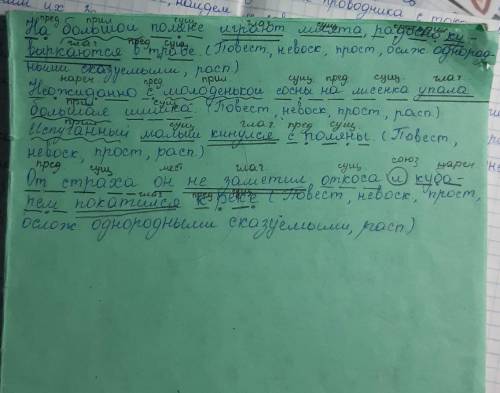 пред прил сущ глаг сущ
На большой поляне играют лисята, радостно ку-
глаг пред сущ
выркаются в траве. (Повест, невоск, прост, осложн однород-
ными сказуемыми, расп.)
нареч пред прил сущ пред сущ глаг
Неожиданно с молоденькой сосны на лисёнка упала
прил сущ
большая шишка. (Повест, невоск, прост, расп.)
прил сущ глаг пред сущ
Испуганный малыш кинулся с поляны. (Повест,
невоск, прост, расп.)
пред сущ мест глаг сущ союз нареч
От страха он не заметил откоса и куба-
глаг пред сущ
рем покатился к реке (Повест, невоск, прост,
ослож однородными сказуемыми, расп.)